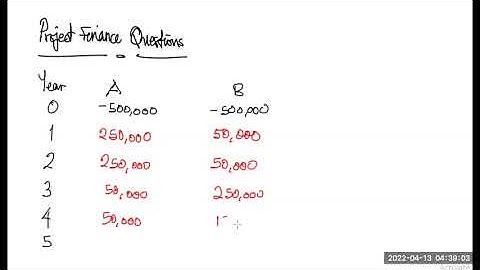 Project Finance Questions
Year A B
0 -500,000 -500,000
1 250,000 50,000
2 250,000 50,000
3 50,000 250,000
4 50,000
5
2022-04-13 04:39:03